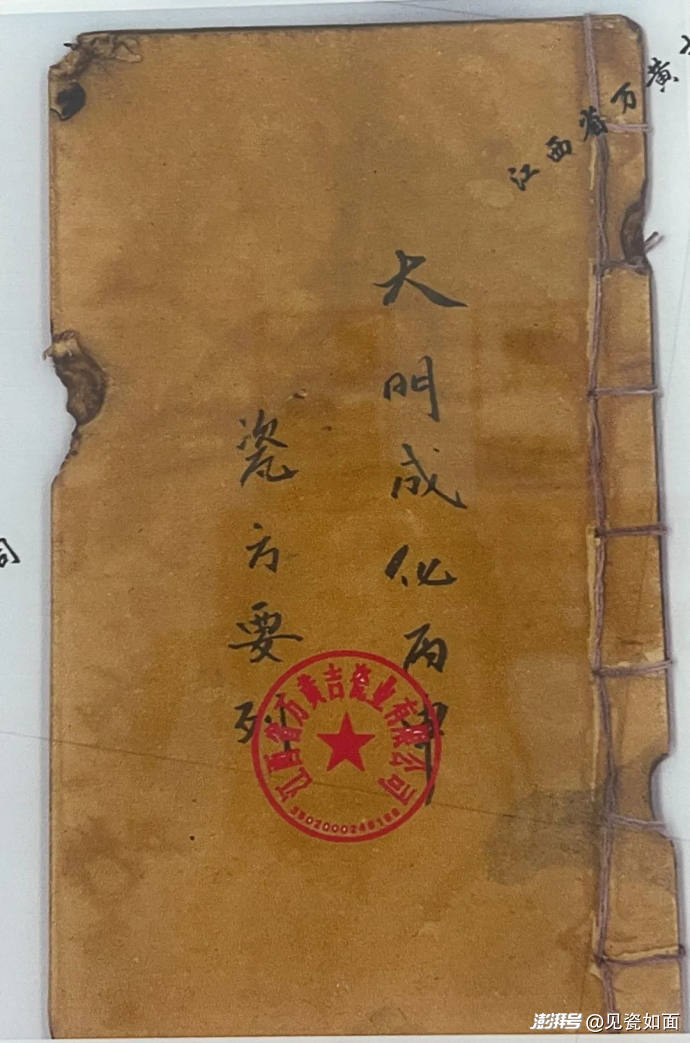 江西省万黄
大明成化丙申
瓷方要列
江西省万黄吉瓷业有限公司
司
澎湃号@见瓷如面